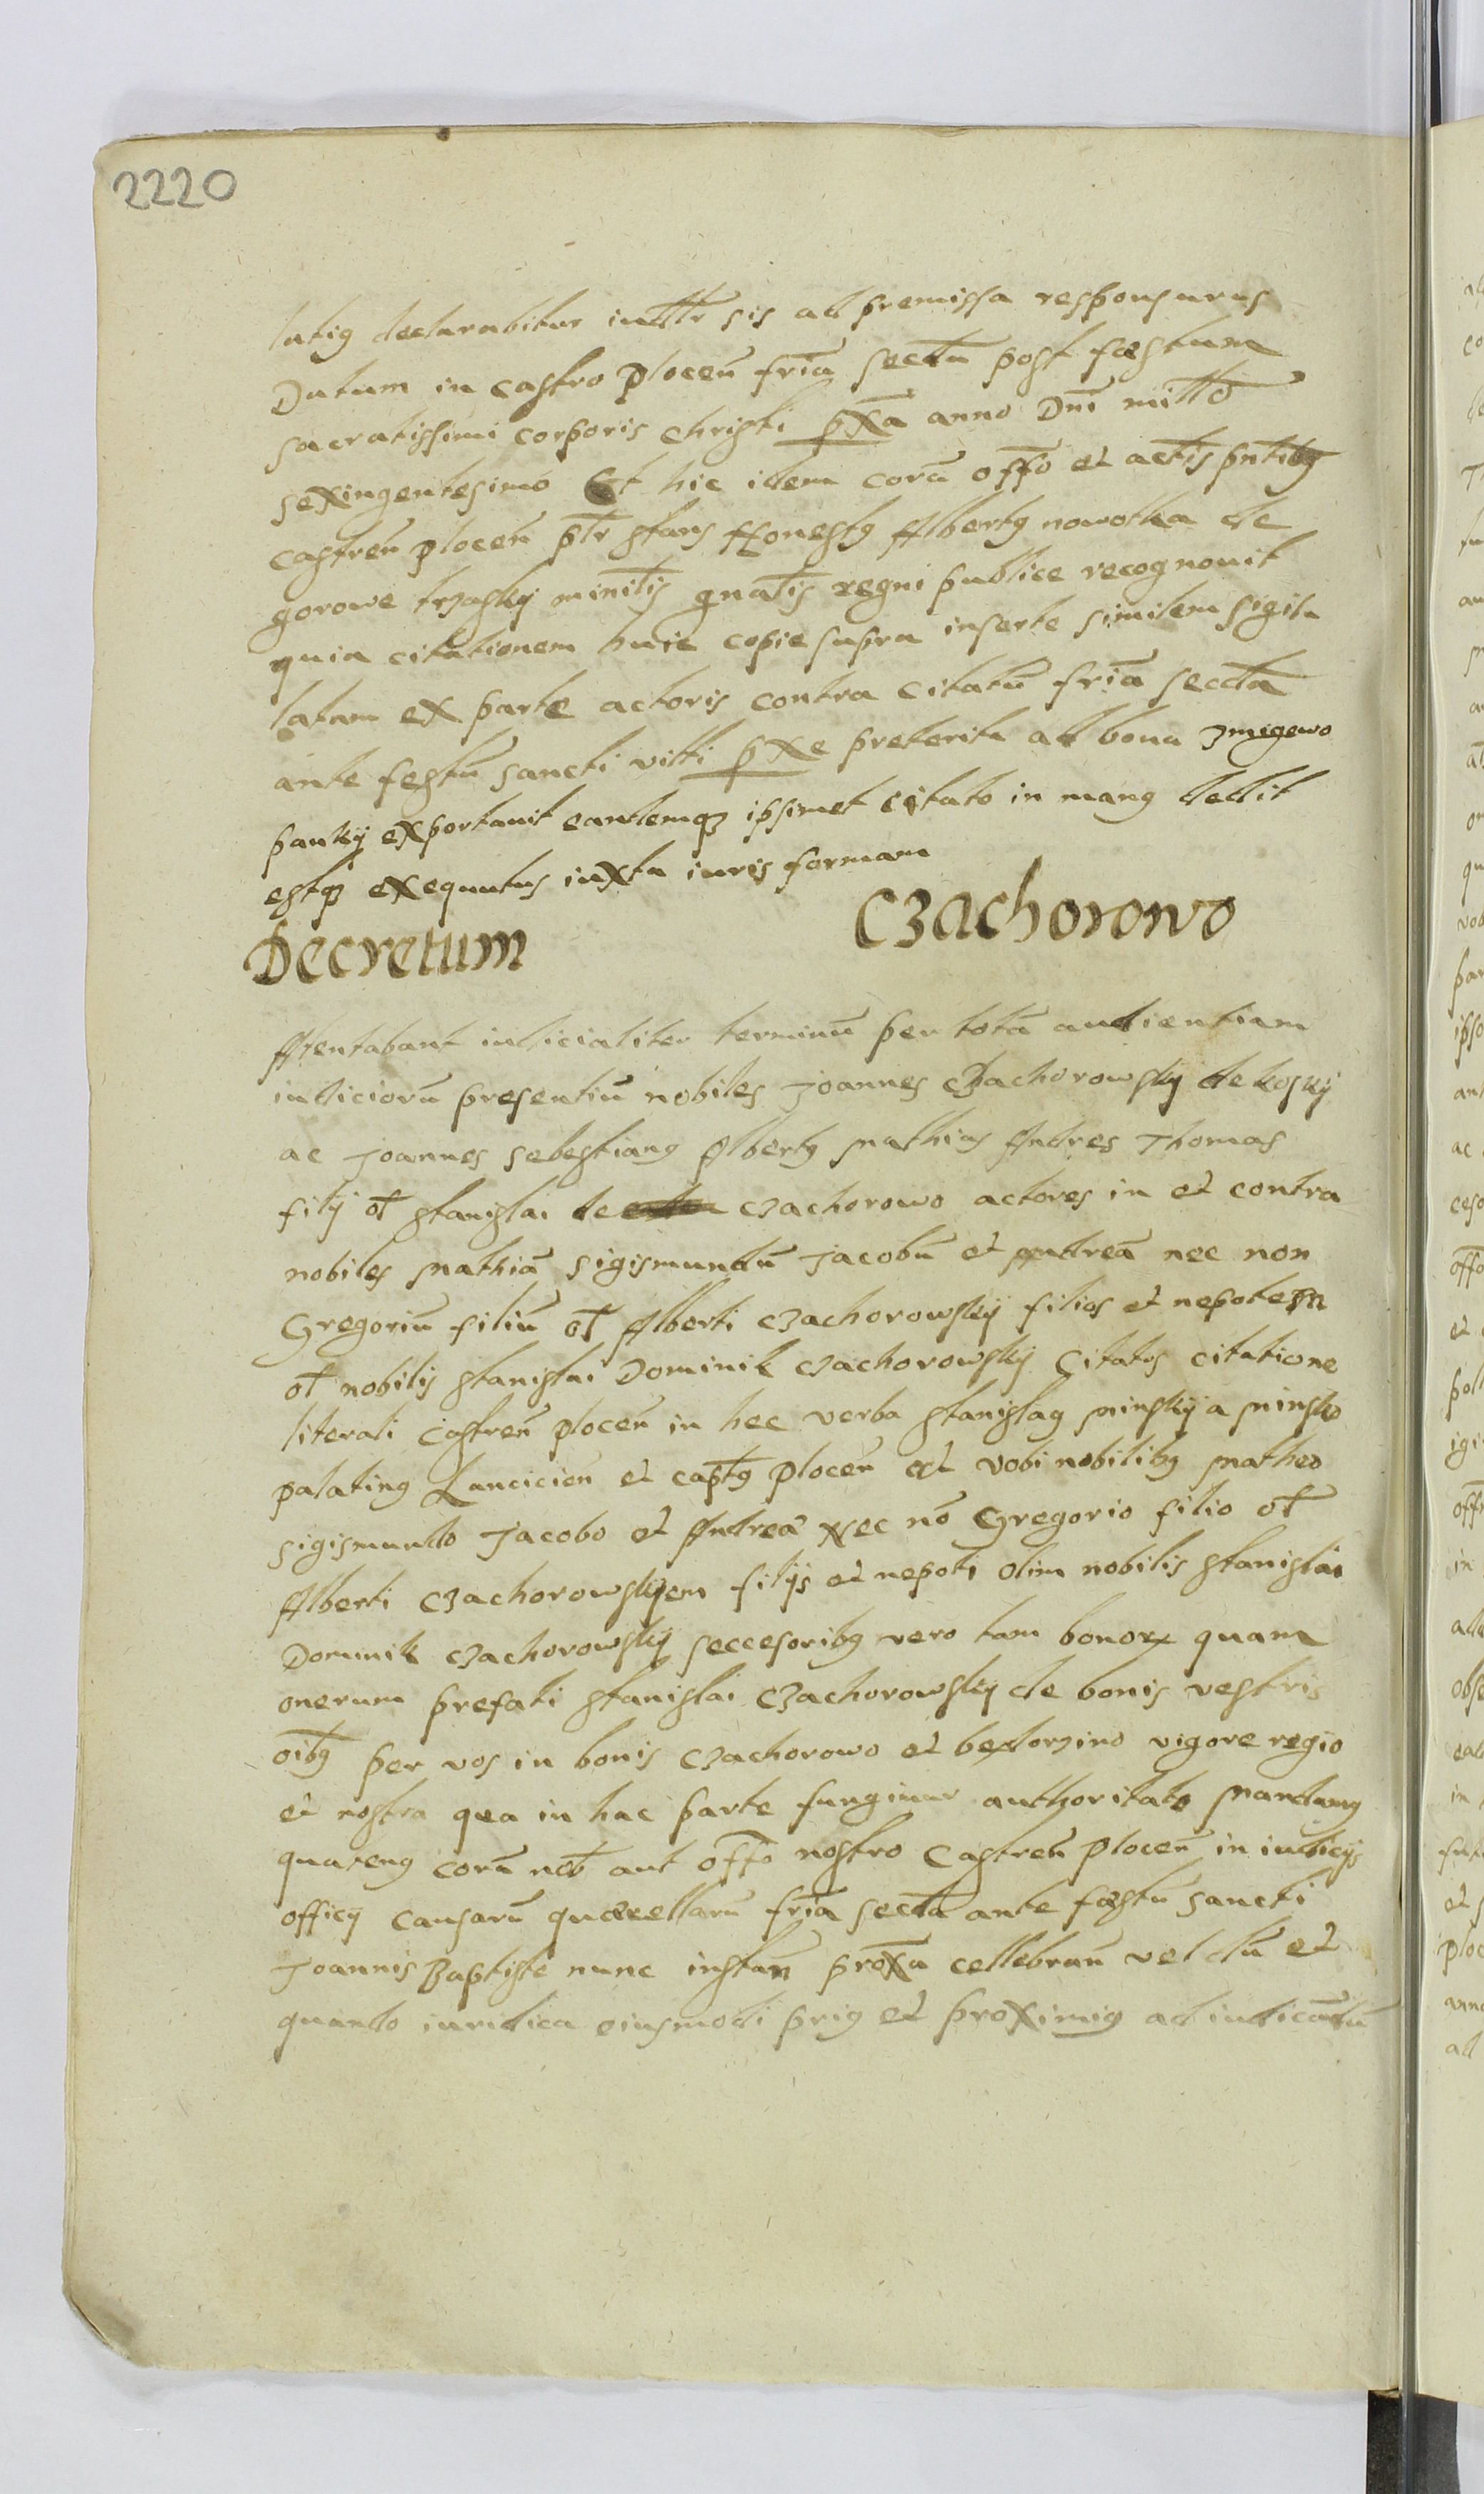 2220
latig declarabitur iudlr sis ad premissa responsurus
Datum in castro plocen̄ fria̅ sectu̅ post fœstum
sacratissimi corporis christi p̅xa anno Dni̅ millō
sexingentesimo Et hic idem cora̅ offō et actis̅ pn̅tibg
castren̄ plocen̄ pl̅r stans Honestg Albertg nowotka de
gorowe trzasky minit̅is gnat̅is regni publice recognouit
quia citationem huic copie supra inserte similem sigila
latam ex parte actoris contra citatu̅ fria̅ secta̅
ante festu̅ sancti vitti p̅xe preterita ad bona zmigewo
panky exportauit eandemqz ipsimet citato in mang dedit
estqz exequutus iuxta iuris formam
Decretum Czachorowo
Attentabant iudicialiter terminu̅ per tota̅ audientiam
iudicioru̅ presentiu̅ nobiles Joannes Czachorowsky de kosky
ac Joannes sebestiang Albertg Mathias Andres Thomas
filij ol̅ stanislai de czachorowo actores in et contra
nobiles Mathia̅ sigismundu̅ Jacobu̅ et Andrea̅ nec non
Gregoriu̅ filiu̅ ol̅ Alberti czachorowsky filios et nepotem
ol̅ nobilis stanislai Dominik czachorowsky Citatos citatione
literali castren̄ plocen̄ in hec verba stanislag Minsky a Minsko
palating Lancicien̄ et capt̅g plocen̄ et vobi nobilibg Matheo
sigismundo Jacobo et Andrea̅ Nec no̅ Gregorio filio ol̅
Alberti czachorowskyem filijs et nepoti olim nobilis stanislai
Dominik czachorowsky seccesoribg vero tam bonorx quam
onerum prefati stanislai Czachorowsky de bonis vestris
oi̅bg per vos in bonis czachorowo et bextorzino vigore regio
et nostra qua in hac parte fungimur authoritate Mandamg
quateng cora̅ nob̅ aut offō nostro Castren̄ plocen̄ in iudicijs
officij causaru̅ quærellaru̅ fria̅ secta̅ ante fœstu̅ sancti
Joannis Baptiste nunc instan̄ pro̅xa cellebran̄ vel du̅ et
quando iuridica eiusmodi prig et proximig ad iudicandu̅